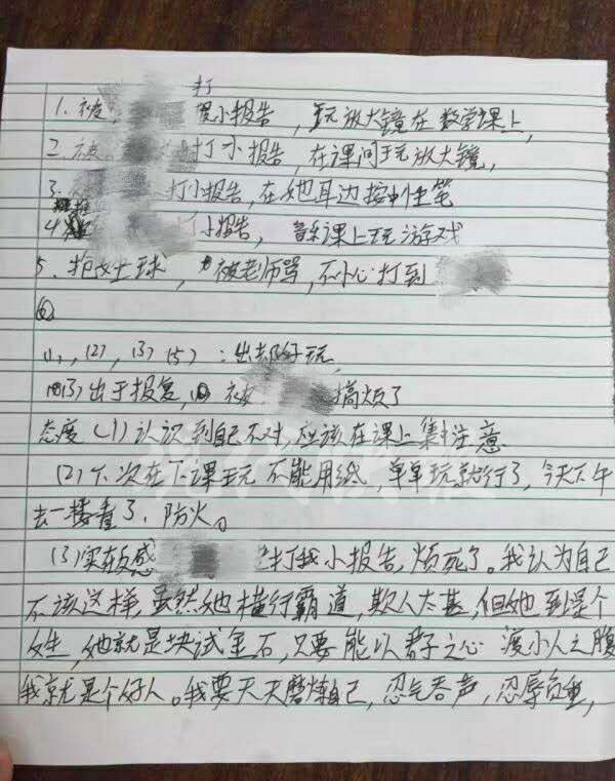 打
1. 被 小报告，玩放大镜在数学课上，
2. 被 打小报告，在课间玩放大镜，
3. 打小报告，在她耳边按中性笔
4. 打小报告，音乐课上玩游戏
5. 抢女生球，被老师骂，不小心打到
⑥
(1)，(2)，(3) (5)：出于好玩
(3) 出于报复， 被 搞烦了
态度(1)认识到自己不对，应该在课上集中注意
(2)下次在下课玩 不能用纸，单单玩就行了，今天下午
去一楼看了、防火。
(3)实在反感 她打我小报告，烦死了。我认为自己
不该这样，虽然她横行霸道，欺人太甚，但她到是个
女生，她就是块试金石，只要能以君子之心 渡小人之腹
我就是个好人。我要天天磨炼自己，忍气吞声，忍辱负重，